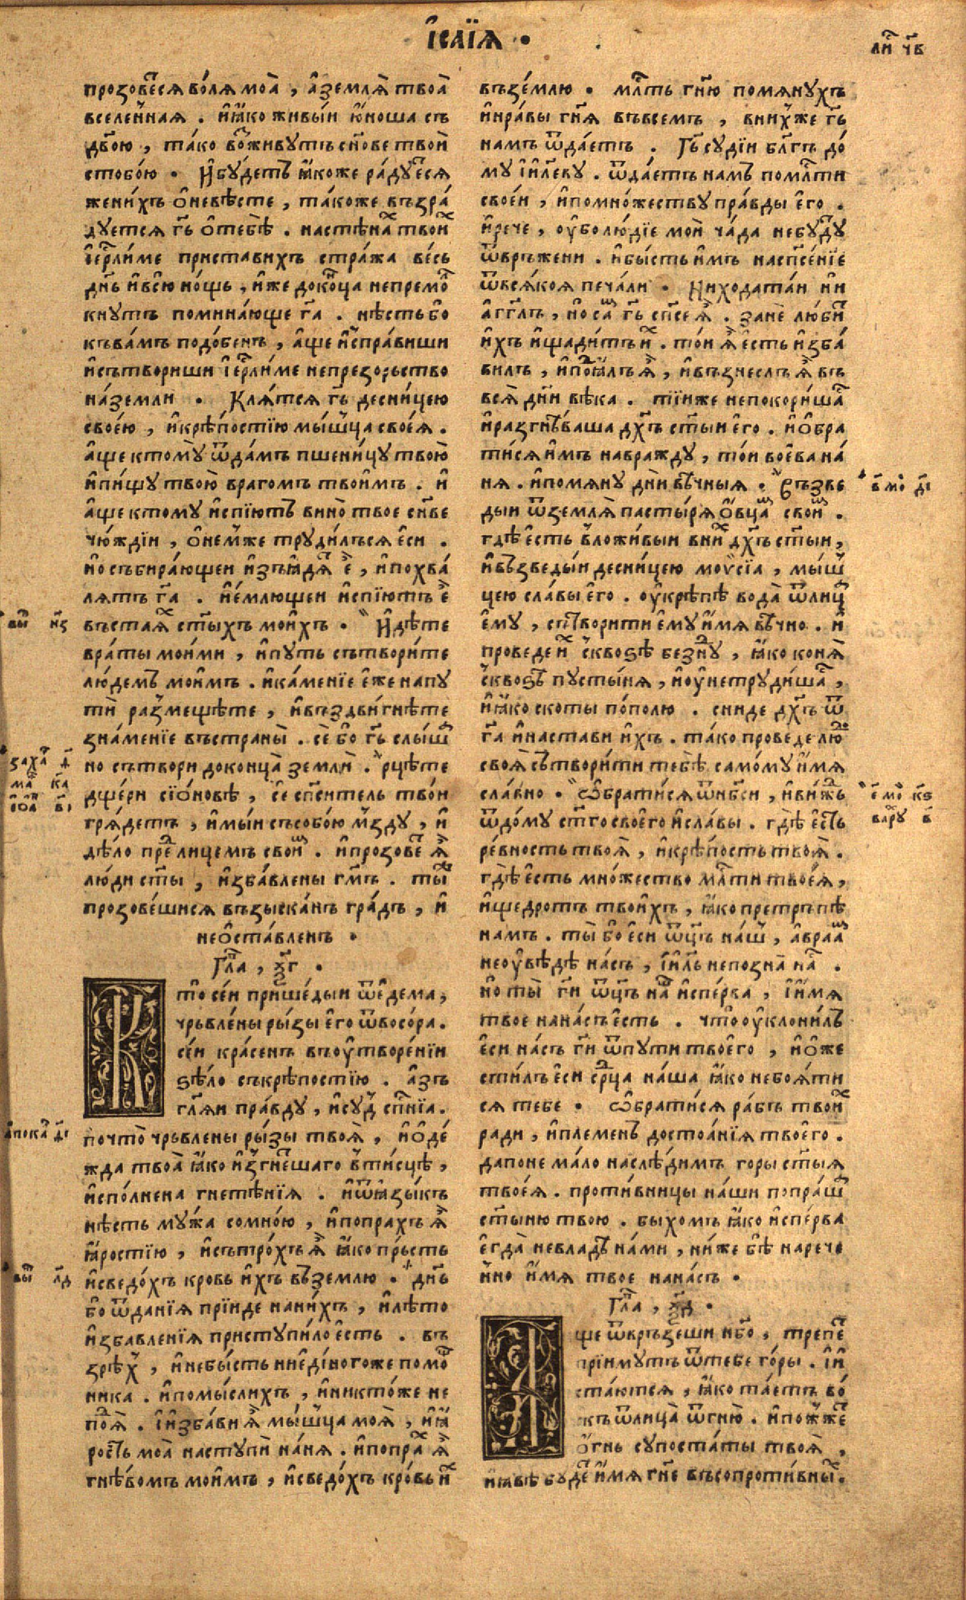 І҆саїѧ •
ли҃ чв
прозове́сѧ во́лѧ моѧ̀ , а҆землѧ̀ твоа̀
вселе́ннаѧ . и҆ꙗ҆́ко живы́и ю҆́ноша съ
дв҃ою , та́ко во́живутъ сн҃ове твоѝ
стобо́ю • И҆бу́детъ ꙗ҆́коже ра́дуесѧ
жени́хъ ѡ҆неве́сте , та́коже възра́
дуетсѧ гь҃ ѡ҆тебѣ̀ . настѣна́ твои
і҆ер҃ли́ме приста́вихъ стра́жа ве́сь
дн҃ь и҆всю̀ но́щь , и҆́же доко́нца непремо
кну́тъ помина́юще га҃ . нѣ́сть бо
къва́мъ подо́бенъ , а҆́ще и҆спра́виши
и҆сътвори́ши і҆ер҃ли́ме непрезо́рьство
на́земли • Клѧ́тсѧ гь҃ десни́цею
свое́ю , и҆крѣ́постїю мы́шца своеѧ̀ .
а҆́ще ктому̀ ѿда́мъ пшени́цу твою̀
и҆пи́щу твою̀ враго́мъ твои́мъ . и҆
а҆́ще ктому̀ и҆спїю́тъ вино̀ твоѐ сн҃ве
чю́ждїи , ѡ҆не́мже труди́лъсѧ є҆сѝ .
но събира́ющеи и҆зъꙗдѧ́ е҆̀ , и҆похва́
лѧтъ га҃ . и҆е҆́млющеи и҆спїю́тъ е҆̀
въста́ѧ ст҃ы́хъ мои́хъ • И҆дѣ́те
враты̀ мои́ми , и҆пу́ть сътвори́те
лю́демъ мои́мъ . и҆ка́менїе е҆́же напу
тѝ разме́щѣте , и҆въздви́гнѣте
зна́менїе въстраны̀ . се́ бо гь҃ слы́ш
но сътворѝ доконца̀ землѝ . рцѣ́те
дще́ри сїо́новѣ , сѐ сп҃си́тель тво́и
грѧде́тъ , и҆мы́и съсобо́ю мзду̀ , и҆
дѣ́ло пред лице́мъ свои . и҆прозове ѧ҆̀
лю́ди ст҃ы , и҆зба́влены гм҃ъ . ты
прозове́шисѧ възы́сканъ гра́дъ , и҆
неѡ҆ста́вленъ •
Гла , ѯ҃г •
Кто̀ се́и прише́дыи ѿе҆де́ма ,
чрьвле́ны ры́зы е҆го̀ ѿвосо́ра .
се́и кра́сенъ въоу҆творе́нїи
ѕѣ́ло съкрѣ́постїю . а҆́зъ
гл҃ѧи пра́вду , и҆су́д сп҃нїа .
почто̀ чрьвле́ны ры́зы твоѧ̀ , и҆ѡ҆де́
жда твоа̀ ꙗ҆́ко и҆згне́шаго в҆ти́сцѣ ,
и҆спо́лнена гнете́нїѧ . и҆ѿꙗ҆зы́къ
нѣ́сть му́жа сомно́ю , и҆попра́хъ ѧ҆̀
ꙗ҆́ростїю , и҆сътро́хъ ѧ҆̀ ꙗ҆́ко пръ́сть
и҆сведо́хъ кро́вь и҆́хъ възе́млю • дн҃ь
бо ѿда́нїѧ прїи́де нани́хъ , и҆лѣ́то
и҆збавле́нїѧ приступи́ло є҆сть . въ
зрѣ́х , и҆небы́сть ниеди́ногоже помо
ника . и҆помы́слихъ , и҆никто́же не
поѧ̀ . і҆и҆зба́ви ѧ҆̀ мы́шца моѧ̀ , и҆ꙗ҆́
рость моа̀ наступѝ на́нѧ . и҆попра ѧ҆̀
гнѣ́вомъ мои́мъ , и҆сведо́хъ кро́вь и҆
възе́млю • мл҃ть гн҃ю помѧну́хъ
и҆нра́вы гн҃ѧ въвсе́мъ , вни́хже гь҃
на́мъ ѿдае́тъ . Гь҃ судїѝ бл҃гъ до́
му і҆и҃леву . ѿдае́тъ на́мъ помл҃ти
свое́и , и҆помно́жеству пра́вды е҆го̀ .
и҆речѐ , оу҆болю́дїе моѝ ча́да небу́ду
ѿвръ́жени . и҆бы́сть и҆́мъ насп҃се́нїе
ѿвсѧ́коѧ печа́ли • Ниходата́и ни
а҆гг҃лъ , но са́м гь҃ сп҃се ѧ҆̀ . занѐ люби
и҆́хъ и҆щади́тъ и҆ . то́и ѧ҆̀ є҆сть и҆зба́
вилъ , и҆поꙗ҆́лъ ѧ҆̀ , и҆възне́слъ ѧ҆̀ въ
всѧ̀ днѝ вѣ́ка . ті́иже непокори́ша
и҆разгнѣ́ваша дх҃ъ ст҃ыи е҆го̀ . и҆ѡ҆бра
ти́сѧ и҆́мъ навра́жду , то́и воева̀ на́
нѧ . и҆помѧну̀ днѝ вѣ́чныѧ . Възве
ды́и ѿземлѧ̀ па́стырѧ ѻ҆вца́м свои .
гдѣ̀ є҆сть вложи́выи вни́ дх҃ъ ст҃ыи ,
и҆възведы́и десни́цею моѵ̈сїа , мы́ш
цею сла́вы е҆го̀ . оу҆крѣпѣ̀ вода̀ ѿлиц
е҆му̀ , сътвори́ти е҆му̀ и҆́мѧ вѣ́чно . и҆
проведе и҆ сквоѕѣ̀ бе́здну , ꙗ҆́ко конѧ̀
сквоѕѣ̀ пусты́нѧ , и҆оу҆нетруди́ша ,
и҆ꙗ҆́ко скоты̀ по́полю . сни́де дх҃ъ ѿ
га҃ и҆наста́ви и҆́хъ . та́ко проведе лю́ди
своѧ̀ сътвори́ти тебѣ̀ само́му и҆́мѧ
сла́вно • Ѡ҆брати́сѧ ѿнб҃си , и҆ви́жь
ѿдо́му ст҃го своего̀ и҆сла́вы . гдѣ̀ е҆сть
ре́вность твоѧ̀ , и҆крѣ́пость твоѧ̀ .
гдѣ̀ е҆сть мно́жество мл҃ти твоеѧ̀ ,
и҆щедро́тъ твои́хъ , ꙗ҆́ко претръпѣ̀
на́мъ . ты́ бо е҆сѝ ѿц҃ъ на́ш , а҆враа́м
неоу҆вѣ́дѣ на́съ , і҆и҃ль непозна̀ на́ .
но ты̀ гн҃и ѿц҃ъ на́ш и҆спе́рва , і҆и҆́мѧ
твоѐ нана́съ е҆сть . что̀ оу҆клони́лъ
е҆сѝ на́съ гн҃и ѿпутѝ твоего̀ , и҆ѡ҆же
сти́лъ е҆сѝ ср҃ца на́ша ꙗ҆́ко небоѧ́ти
сѧ тебѐ • Ѡ҆брати́сѧ ра́бъ твои
ра́ди , и҆племе́нъ достоа́нїѧ твоего̀ .
да́поне ма́ло наслѣ́димъ го́ры ст҃ыѧ
твоеѧ̀ . проти́вницы на́ши попра́ш
ст҃ы́ню твою̀ . бы́хомъ ꙗ҆́ко и҆спе́рва
е҆гда̀ невладѣ̀ на́ми , ни́же бѣ̀ нарече
нно и҆́мѧ твоѐ нана́съ •
Гла , ѯ҃д •
Аще ѿвръ́зеши нб҃о , тре́пе
прїи́мутъ ѿтебѐ го́ры . і҆и
ста́ютсѧ , ꙗ҆́ко та́етъ во́
къ ѿлица̀ ѿгню̀ . и҆пожже
ѻ҆́гнь супоста́ты твоѧ̀ ,
и҆ꙗ҆вѣ бу́де и҆́мѧ гн҃е въсопроти́вны .